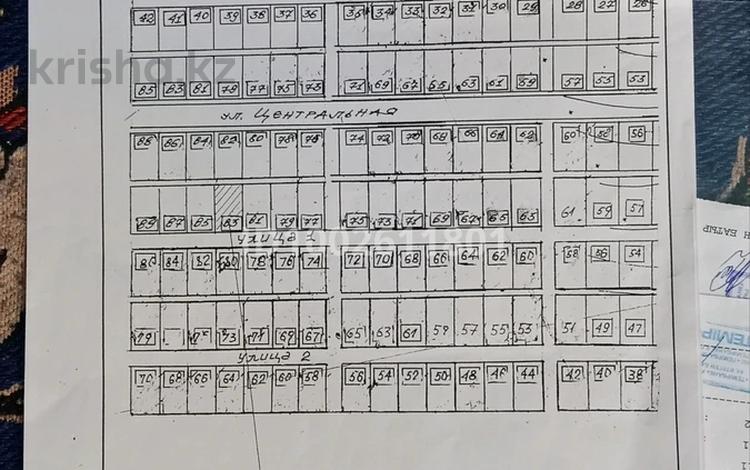 42 41 40 39 38 37 36 35 34 33 32 31 30 29 28 27 26
krisha.kz
85 83 81 79 77 75 73 71 69 67 65 63 61 59 57 55 53
ул. Центральная
88 86 84 82 80 78 76 74 72 70 68 66 64 62 60 58 56
89 87 85 83 81 79 77 75 73 71 69 67 65 63 61 59 57
улица 1
86 84 82 80 78 76 74 72 70 68 66 64 62 60 58 56 54
79 73 71 69 67 65 63 61 59 57 55 53 51 49 47
улица 2
70 68 66 64 62 60 58 56 54 52 50 48 46 44 42 40 38
Н БАТЫР
ТЕМІР